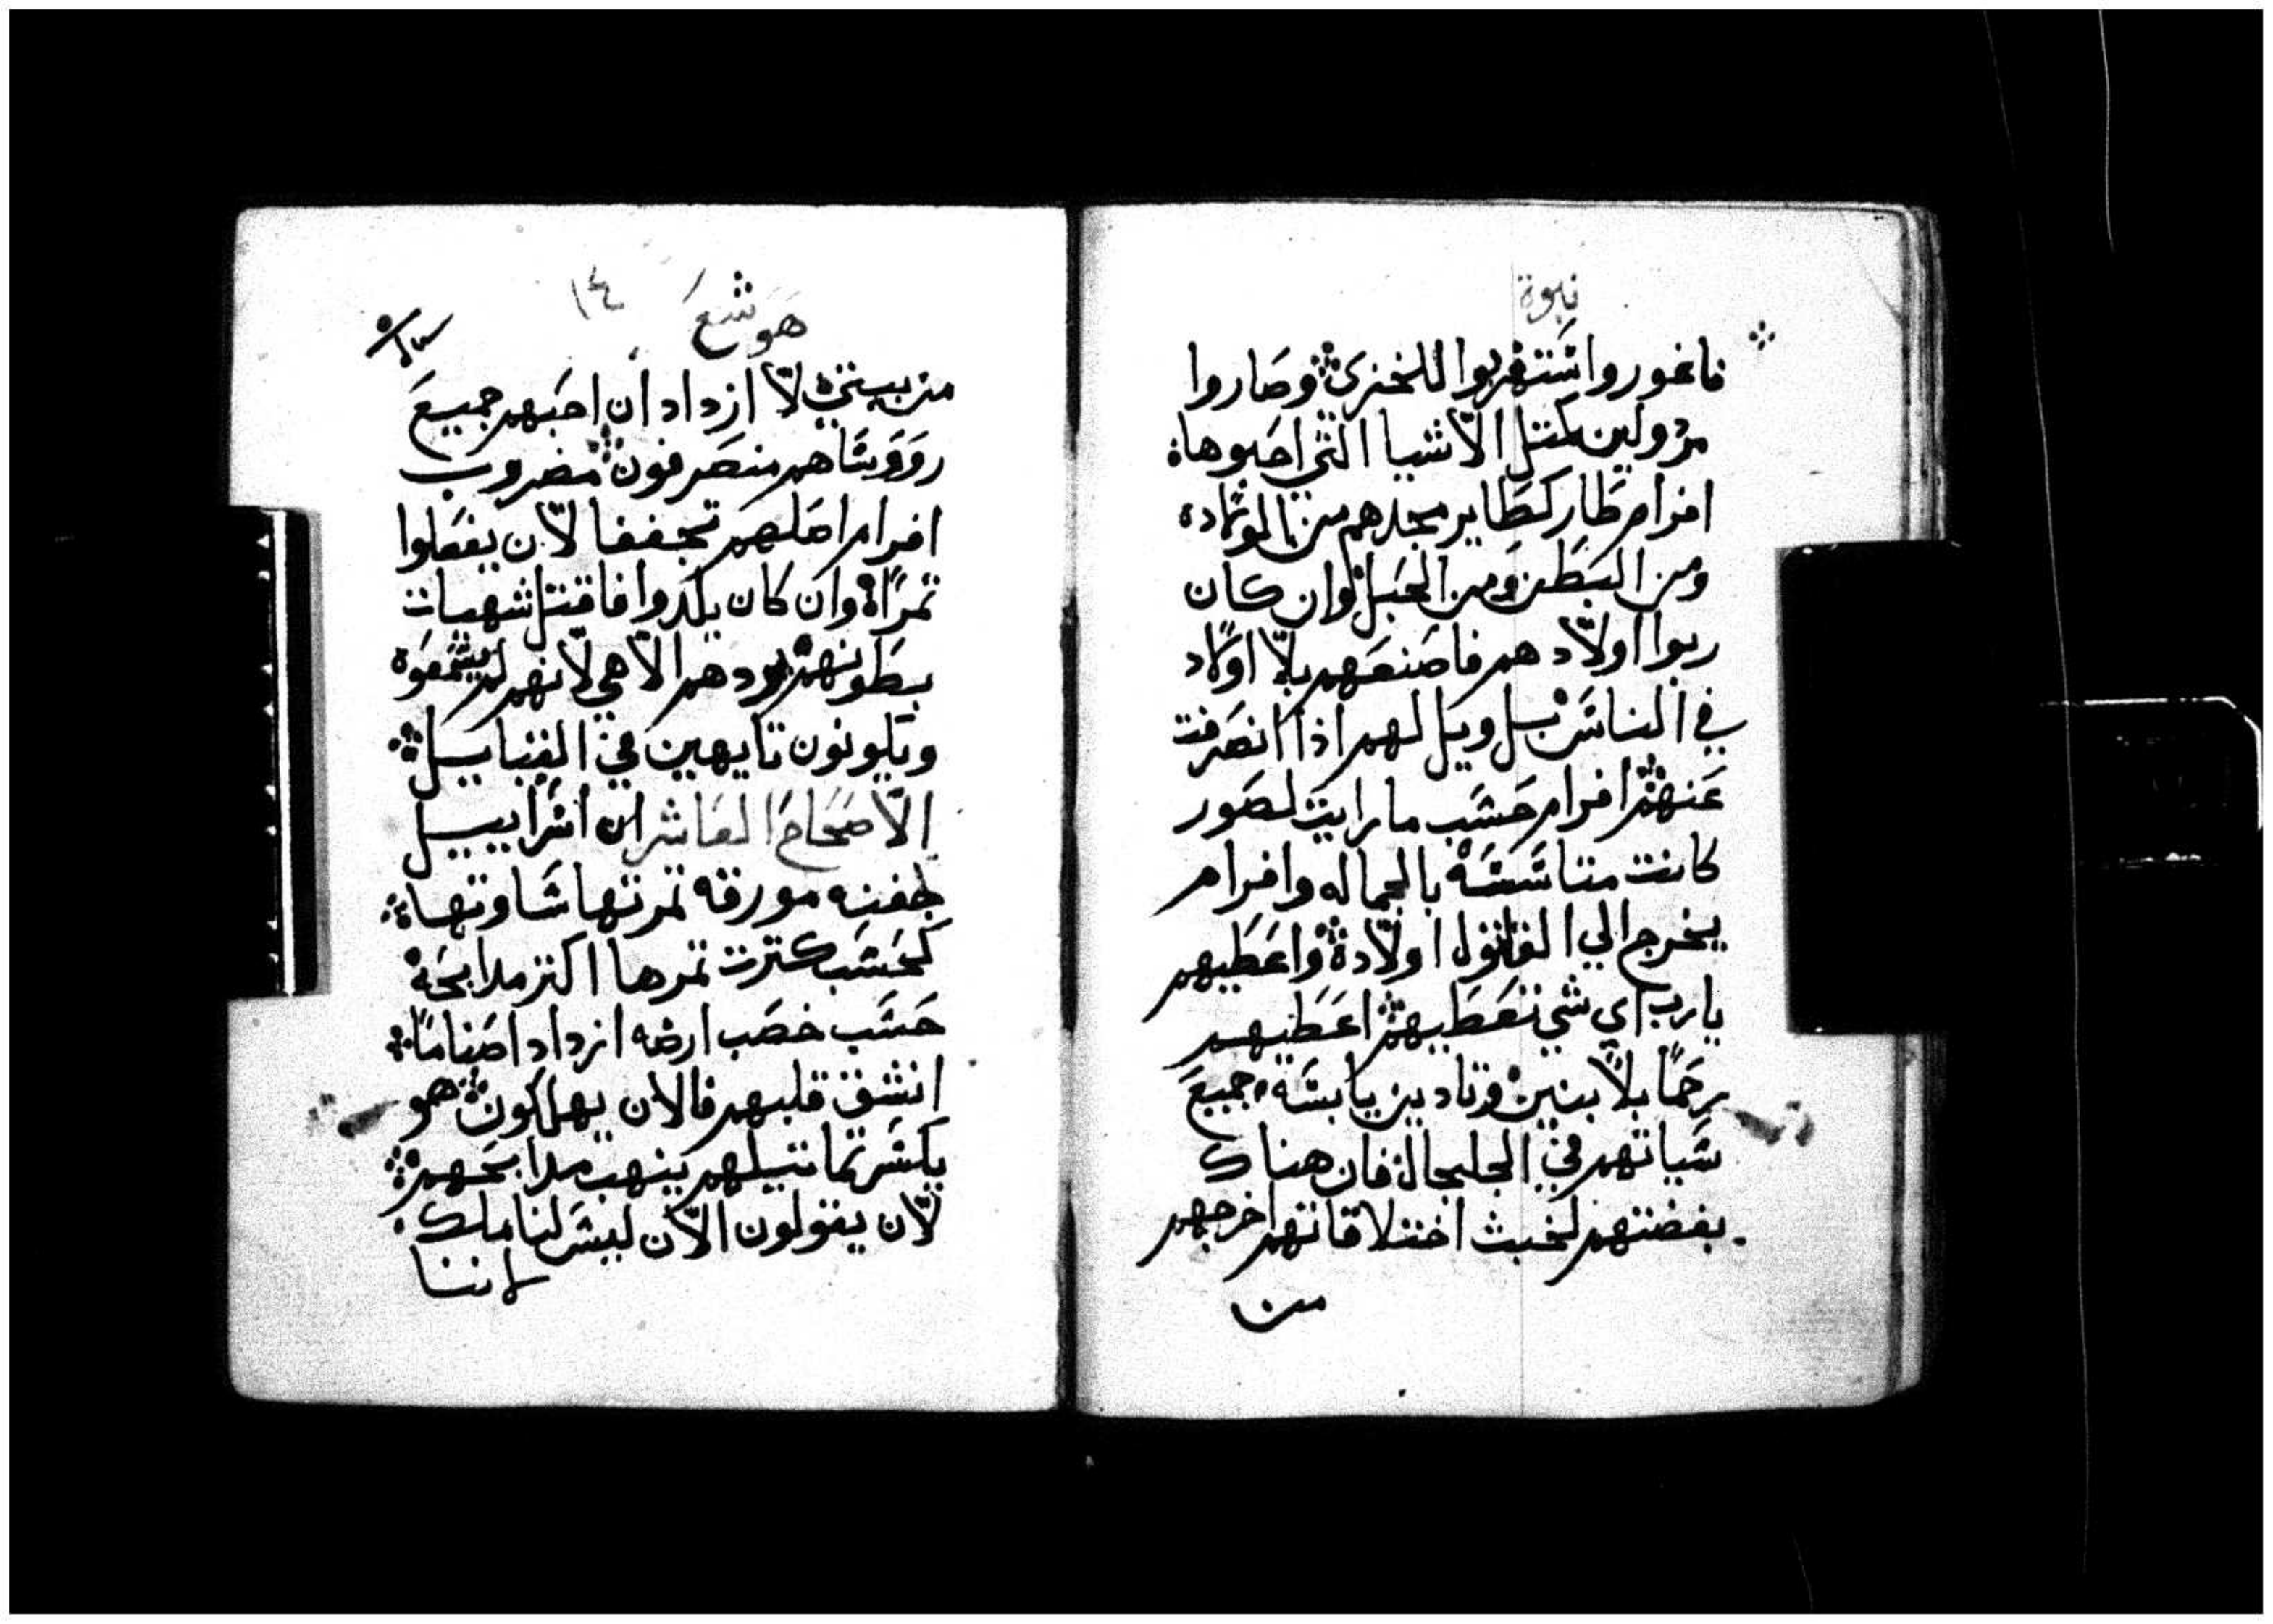 نبوة
فاغوروا ستغربوا للخزي وصاروا
مردولين كمتل الاشيا التي احبوها
افرام طار كطاير مجدهم من المولاده
ومن البطن ومن الحبل وان كان
ربوا اولاد هم فاصنعهم بلا اولاد
في الناس بل ويل لهم اذا انصرفت
عنهم افرام حسب ما رايت لصور
كانت متاسسه بالجماله وافرام
يخرج الي القاتول اولاده واعطيهم
يارب اي شي تعطيهم اعطيهم
رحما بلا بنين وتاديين يابسه جميع
سياتهم في الجلجال فان هناك
بغضتهم لخبث اختلاقاتهم اخرجهم
من
هوشع ١٤
من بيتي لا ازداد ان احبهم جميع
روَوساهم منصرفون مضروب
افرام اصلهم تجففا لان يفعلوا
تمراة وان كان يلدوا فاقتل شهيات
بطونهم يرد هم الاهي لانهم لم يسمعوه
ويكونون تايهين في القبايل
الاصحاح العاشر ان اسراييل
جفنه مورقه تمرتها ساوتها
كحسب كترت تمرها اكتر مدابحه
حسب خصب ارضه ازداد اصناما
انشق قلبهم فالان يهلكون هو
يكسر تماتيلهم ينهب مدابحهم
لان يقولون الان ليس لنا ملك
لاننا